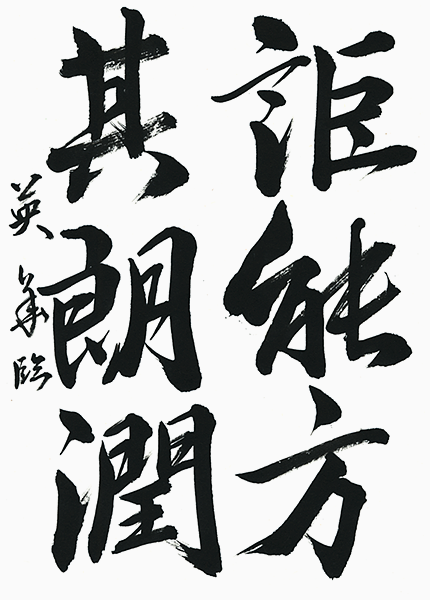 詎能方
其朗潤
英華臨